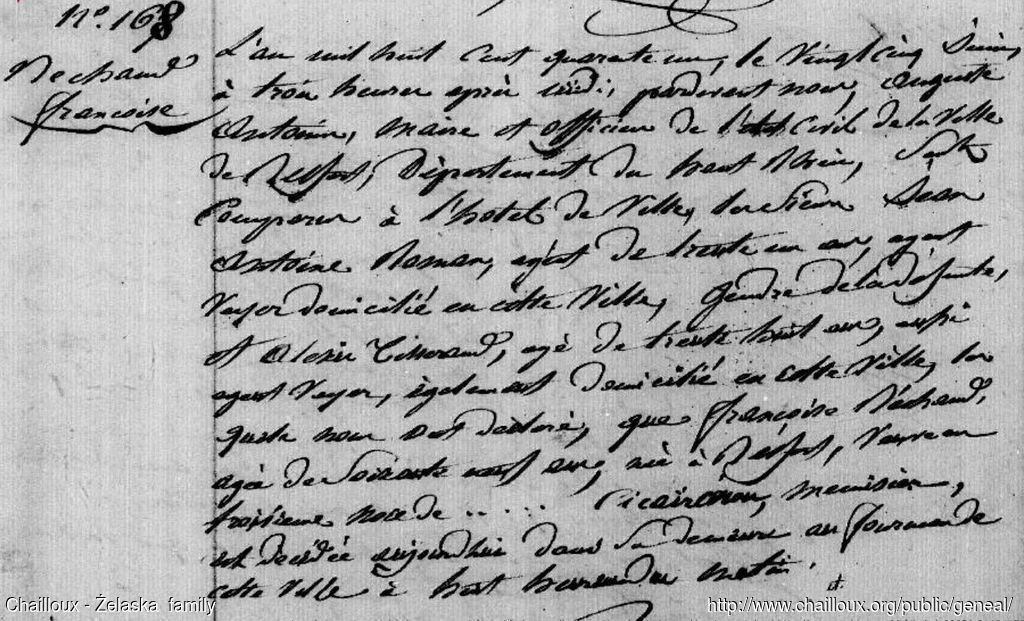 N.º 168
Nechaud
françoise
L'an mil huit Cent quarante un, le Vingt cinq Juin,
à trois heures après midi, pardevant nous, Auguste
Antonin, Maire et officier de l'état Civil de la Ville
de Belfort, Département du haut Rhin, Sont
Comparus à l'hotel de Ville, les Sieurs Jean
Antoine Roman, agé de trente un ans, agent
Voyer domicilié en cette Ville, Gendre de la défunte,
et Alexis Tisserand, agé de trente huit ans, aussi
agent Voyer, également domicilié en cette Ville, les
quels nous ont déclaré, que françoise Néchaud,
agée de Soixante neuf ans, née à Belfort, Veuve en
troisieme noce de ..... menuisier,
est décédée aujourd'hui dans Sa demeure au fourneau de
cette Ville à huit heures du matin.
Chailloux - Żelaska family
http://www.chailloux.org/public/geneal/